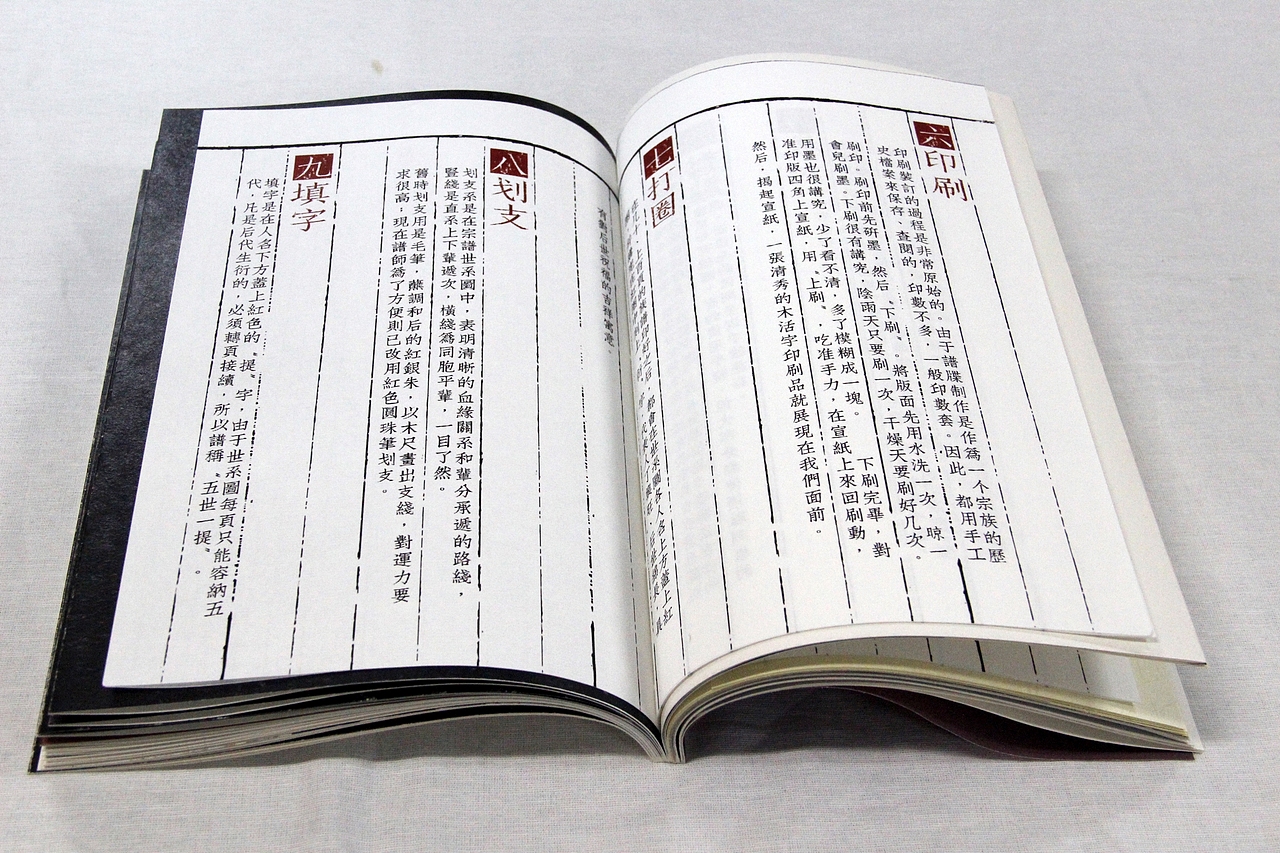 六印刷
印刷裝訂的過程是非常原始的。由于譜牒制作是作為一个宗族的歷
史檔案來保存、查閱的，印數不多，一般印數套。因此，都用手工
刷印。刷印前先研墨，然后〝下刷〞。將版面先用水洗一次，晾一
會兒刷墨。下刷很有講究，陰雨天只要刷一次，干燥天要刷好几次。
用墨也很講究，少了看不清，多了模糊成一塊。 下刷完畢，對
准印版四角上宣紙，用〝上刷〞，吃准手力，在宣紙上來回刷動，
然后，揭起宣紙，一張清秀的木活字印刷品就展現在我們面前。
七打圈
都會在世系圖各人名上方蓋上紅
的吉祥寓意。
八划支
划支系是在宗譜世系圖中，表明清晰的血緣關系和輩分承遞的路綫，
豎綫是直系上下輩遞次，橫綫為同胞平輩，一目了然。
舊時划支用是毛筆，蘸調和后的紅銀朱，以木尺畫出支綫，對運力要
求很高；現在譜師為了方便則已改用紅色圓珠筆划支。
九填字
填字是在人名下方蓋上紅色的〝提〞字，由于世系圖每頁只能容納五
代，凡是后代生衍的，必須轉頁接續，所以講稱〝五世一提〞。